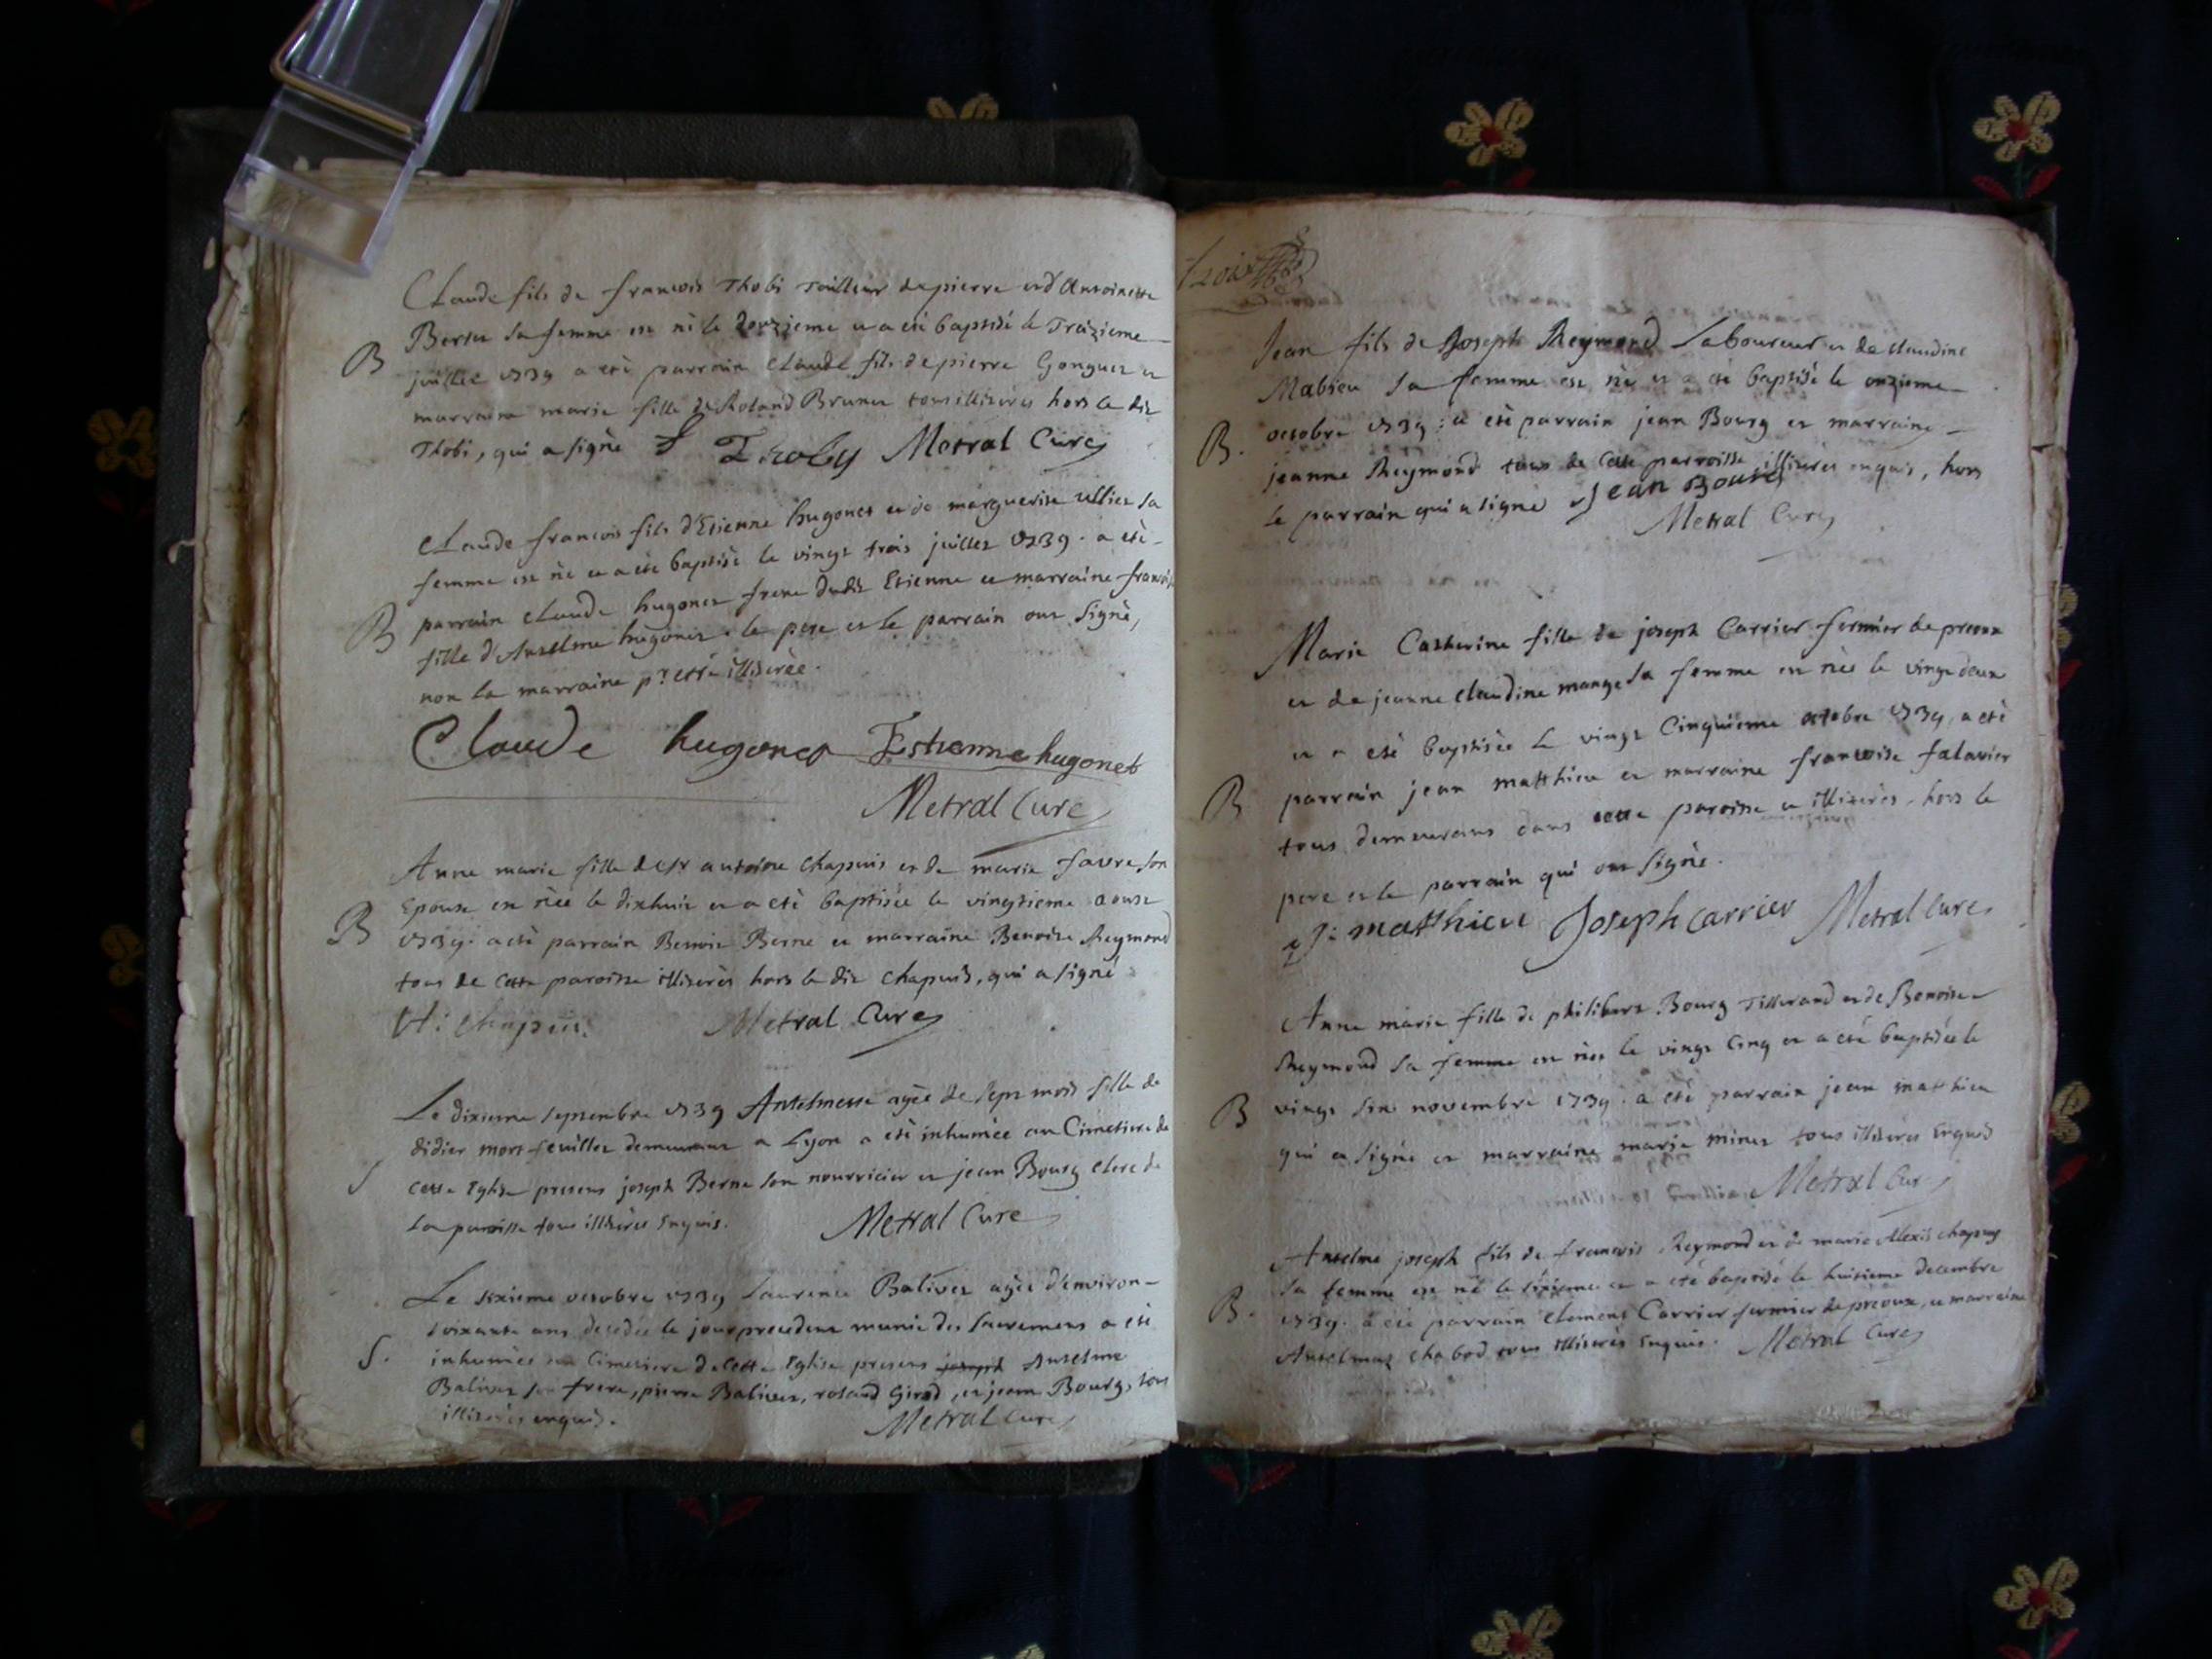 Claude fils de francois Thobi Tailleur de pierre et d'Antoinette
B
Bertet sa femme est nè le douzieme et a eté baptisé le Traizieme
juillet 1739 a eté parrain Claude fils de pierre Gonguet et
marraine marie fille de Roland Brunet tous illiterés hors le dit
Thobi, qui a signè f Thoby Metral Curé
Claude francois fils d'Etienne hugonet et de marguerite ullier sa
femme est né et a eté baptisé le vingt trois juillet 1739. a eté
B
parrain Claude hugonet frere dudit Etienne et marraine
fille d'Anselme hugonet. le pere et le parrain ont signè,
non la marraine pr etre illiterée.
Claude hugonet Estienne hugonet
Metral Curé
Anne marie fille de Sr antoine Chapuis et de marie favre son
Epouse est née le dixhuit et a eté baptisée le vingtieme aoust
B
1739. a eté parrain Benoit Berne et marraine Benoite Reymond
tous de cette paroisse illiterés hors le dit Chapuis, qui a signé
A: Chapuis. Metral Curé
Le dixieme septembre 1739 Antelmette agée de sept mois fille de
didier mort feuillet demeurant a Lyon a eté inhumée au Cimetiere de
S
cette Eglise presens joseph Berne son nourricier et jean Bourg clerc de
la paroisse tous illiterés Enquis. Metral Curé
Le sixieme octobre 1739 Laurence Balivet agée d'environ
soixante ans decedée le jour precedent munie des Sacremens a eté
S.
inhumée au Cimetiere de cette Eglise presens joseph Anselme
Balivet son frere, pierre Balivet, roland Girod, et jean Bourg, tous
illiterés enquis. Metral Curé
Jean fils de Joseph Reymond Laboureur et de claudine
Mabieu sa femme est né et a eté baptisé le onzieme
B.
octobre 1739: a eté parrain jean Bourg et marraine
jeanne Reymond tous de cette parroisse illiterés enquis, hors
le parrain qui a signé jean Bourg
Metral Curé
Marie Catherine fille de joseph Carrier fermier de preoux
et de jeanne claudine mange sa femme est née le vingt deux
et a eté baptisée le vingt Cinquieme octobre 1739, a eté
B
parrain jean matthieu et marraine francoise falavier
tous demeurans dans cette paroisse et illiterés. hors le
pere et le parrain qui ont signé.
J: matthieu Joseph Carrier Metral Curé
Anne marie fille de philibert Bourg Tisserand et de Benoite
Reymond sa femme est née le vingt Cinq et a eté baptisée le
B
vingt six novembre 1739. a eté parrain jean matthieu
qui a signé et marraine marie minet tous illiterés Enquis
Metral Curé
Anselme joseph fils de francois Reymond et de marie Alexis chapuy
sa femme est né le sixieme et a eté baptisé le huitieme decembre
B.
1739. a eté parrain Clement Carrier fermier de preoux, et marraine
Antelmaz chabod tous illiterés Enquis. Metral Curé